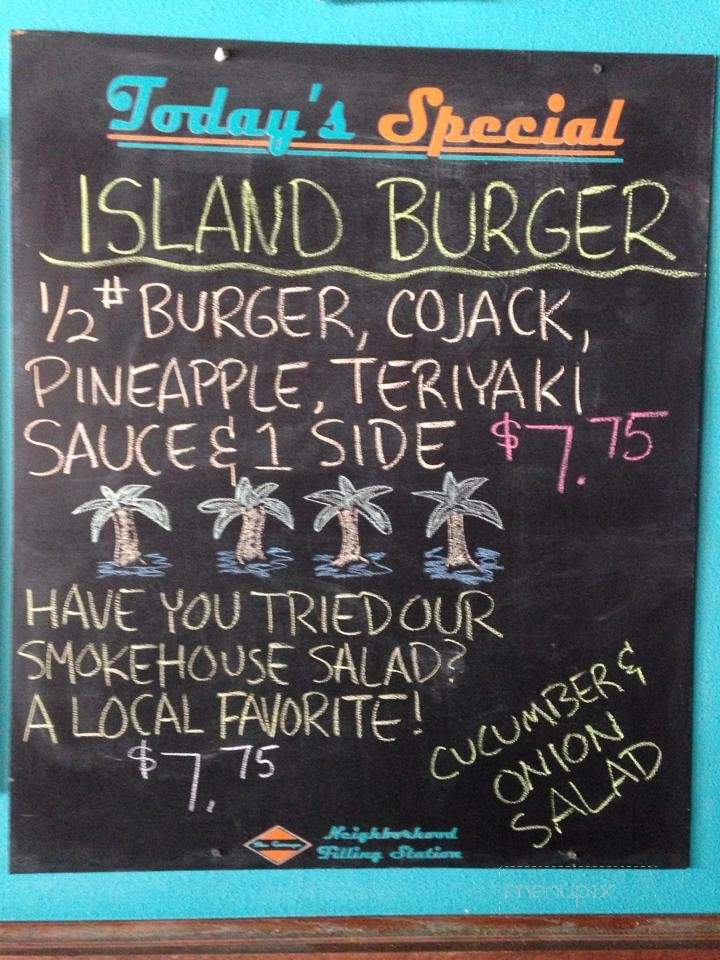 Today's Special
ISLAND BURGER
1/2# BURGER, COJACK,
PINEAPPLE, TERIYAKI
SAUCE & 1 SIDE $7.75
HAVE YOU TRIED OUR
SMOKEHOUSE SALAD?
A LOCAL FAVORITE!
$7.75
CUCUMBER &
ONION
SALAD
The Garage
Neighborhood
Filling Station
menupix